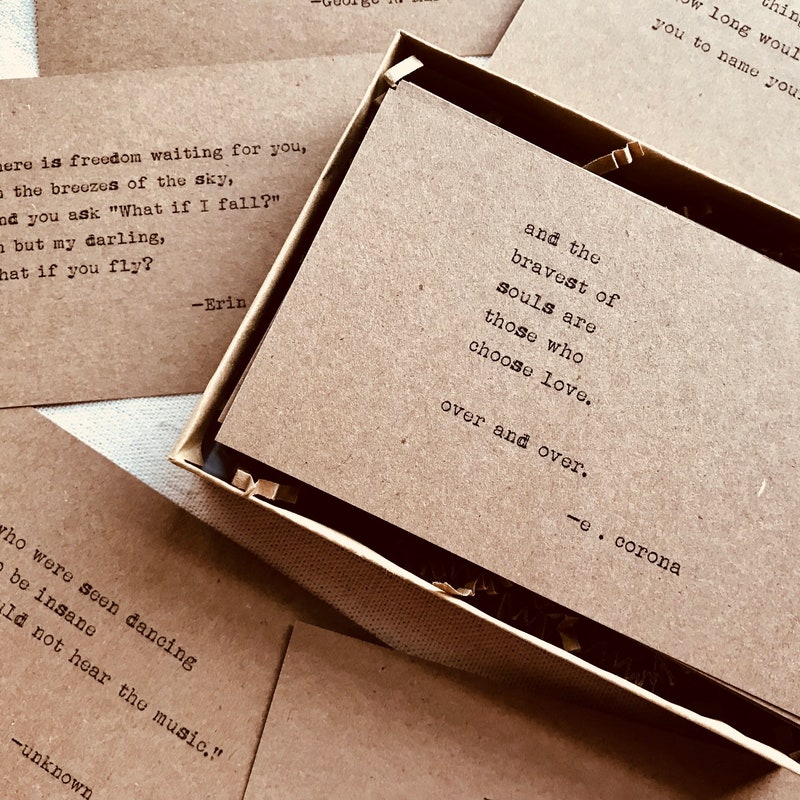 thing
how long would
you to name your
here is freedom waiting for you,
the breezes of the sky,
nd you ask "What if I fall?"
but my darling,
hat if you fly?
—Erin
and the
bravest of
souls are
those who
choose love.
over and over.
—e . corona
who were seen dancing
be insane
uld not hear the music."
—unknown